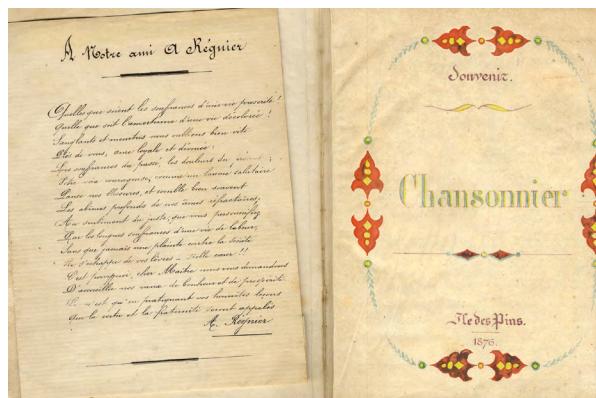 À Notre ami A Régnier
Quelles que soient les souffrances d'une vie !
Quelle que soit l'amertume d'une vie décolorée !
Sanglants et meurtris nous oublions bien vite
Près de vous, âme loyale et divine,
Les souffrances du passé, les douleurs du
Votre vie courageuse, comme un lavoir salitaire
Panse nos blessures, et comble bien souvent
Les abîmes profonds de nos âmes réfractaires,
Au sentiment du juste, que vous personnifiez
Par les longues souffrances d'une vie de labeur,
Sans que jamais une plainte contre la Société
Ne s'échappe de vos lèvres - noble cœur !!
C'est pourquoi, cher Maître nous vous demandons
D'accueillir nos vœux de bonheur et de prospérité
Et n'est qu'en pratiquant vos humaines leçons
Que la vertu et la fraternité seront appelés
A. Régnier
Souvenir.
Chansonnier
Ile des Pins.
1876.